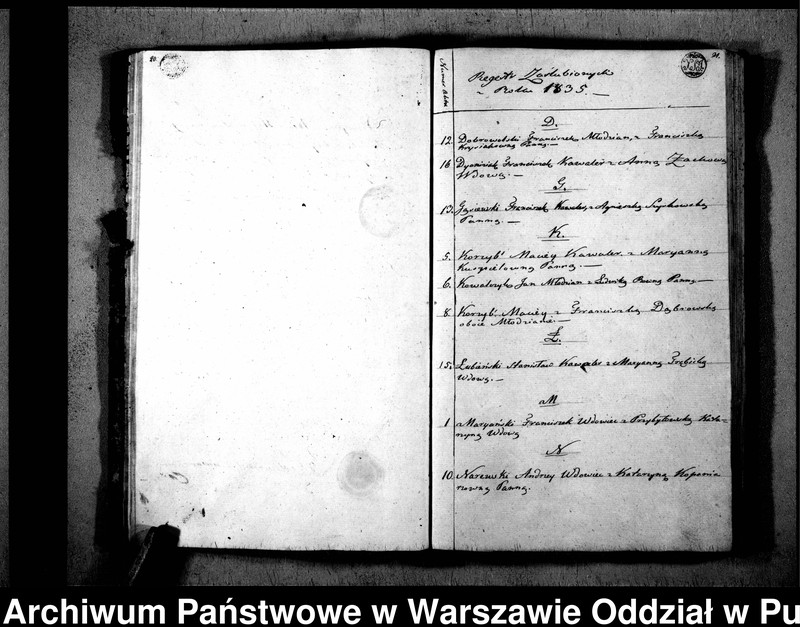 20.
21.
Numer Aktu
Regestr Zaślubionych
Roku 1835.
D.
12. Dobrowolski Franciszek Młodzian, z Franciszką
Krysiakowną Panną.
16 Franciszek Kawaler z Anną Żackową
Wdową.
G.
13. Gąsiewski Franciszek Kawaler, z Agnieszką
Panną.
K.
5. Korzyb Maciey Kawaler, z Maryanną
Panną.
6. Kowalczyk Jan Młodzian z Ludwiką Panną
8 Korzyb Maciey z Franciszką Dąbrowską
oboie Młodzianie.
Ł.
15. Łubiński Stanisław Kawaler z Maryanną
Wdową.
M
1 Maryański Franciszek Wdowiec z Przybyłowską Kata=
rzyną Wdową
N
10. Narewski Andrzey Wdowiec z Katarzyną Kopania
rowną Panną.
Archiwum Państwowe w Warszawie Oddział w Pu